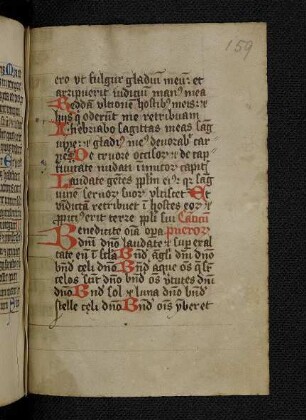 159
ero vt fulgur gladiũ meũ: et
arripuerit iudiciũ manꝰ mea
Reddã vltionẽ hostibꝰ meis: ⁊
hijs q̃ oderũt me retribuam
Inebriabo sagittas meas sãg
uĩe: ⁊ gladiꝰ meꝰ deuorab̃ car
nes De cruore occisor̃ ⁊ de cap
tiuitate nudati inimicor̃ capit̃
Laudate gẽtes pplm̃ eiꝰ: q̃ sãg
uinẽ seruor̃ suor̃ vlciscet̃ Et
vĩdictã retribuet ĩ hostes eor̃ ⁊
ꝓpiciꝰ erit terre ppl̃i sui Cãticũ
Benedicite oĩa oꝑa pueror̃
dñi dño laudate ⁊ suꝑ exal
tate eũ ĩ sc̃la Bñd ãgl̃i dñi dño
bñd celi dño Bñd aque oẽs q̃ sr̃
celos sũt dño bñd oẽs ṽtutes dñi
dño Bñd sol ⁊ luna dño bñd
stelle celi dño Bñd oĩs ymber et